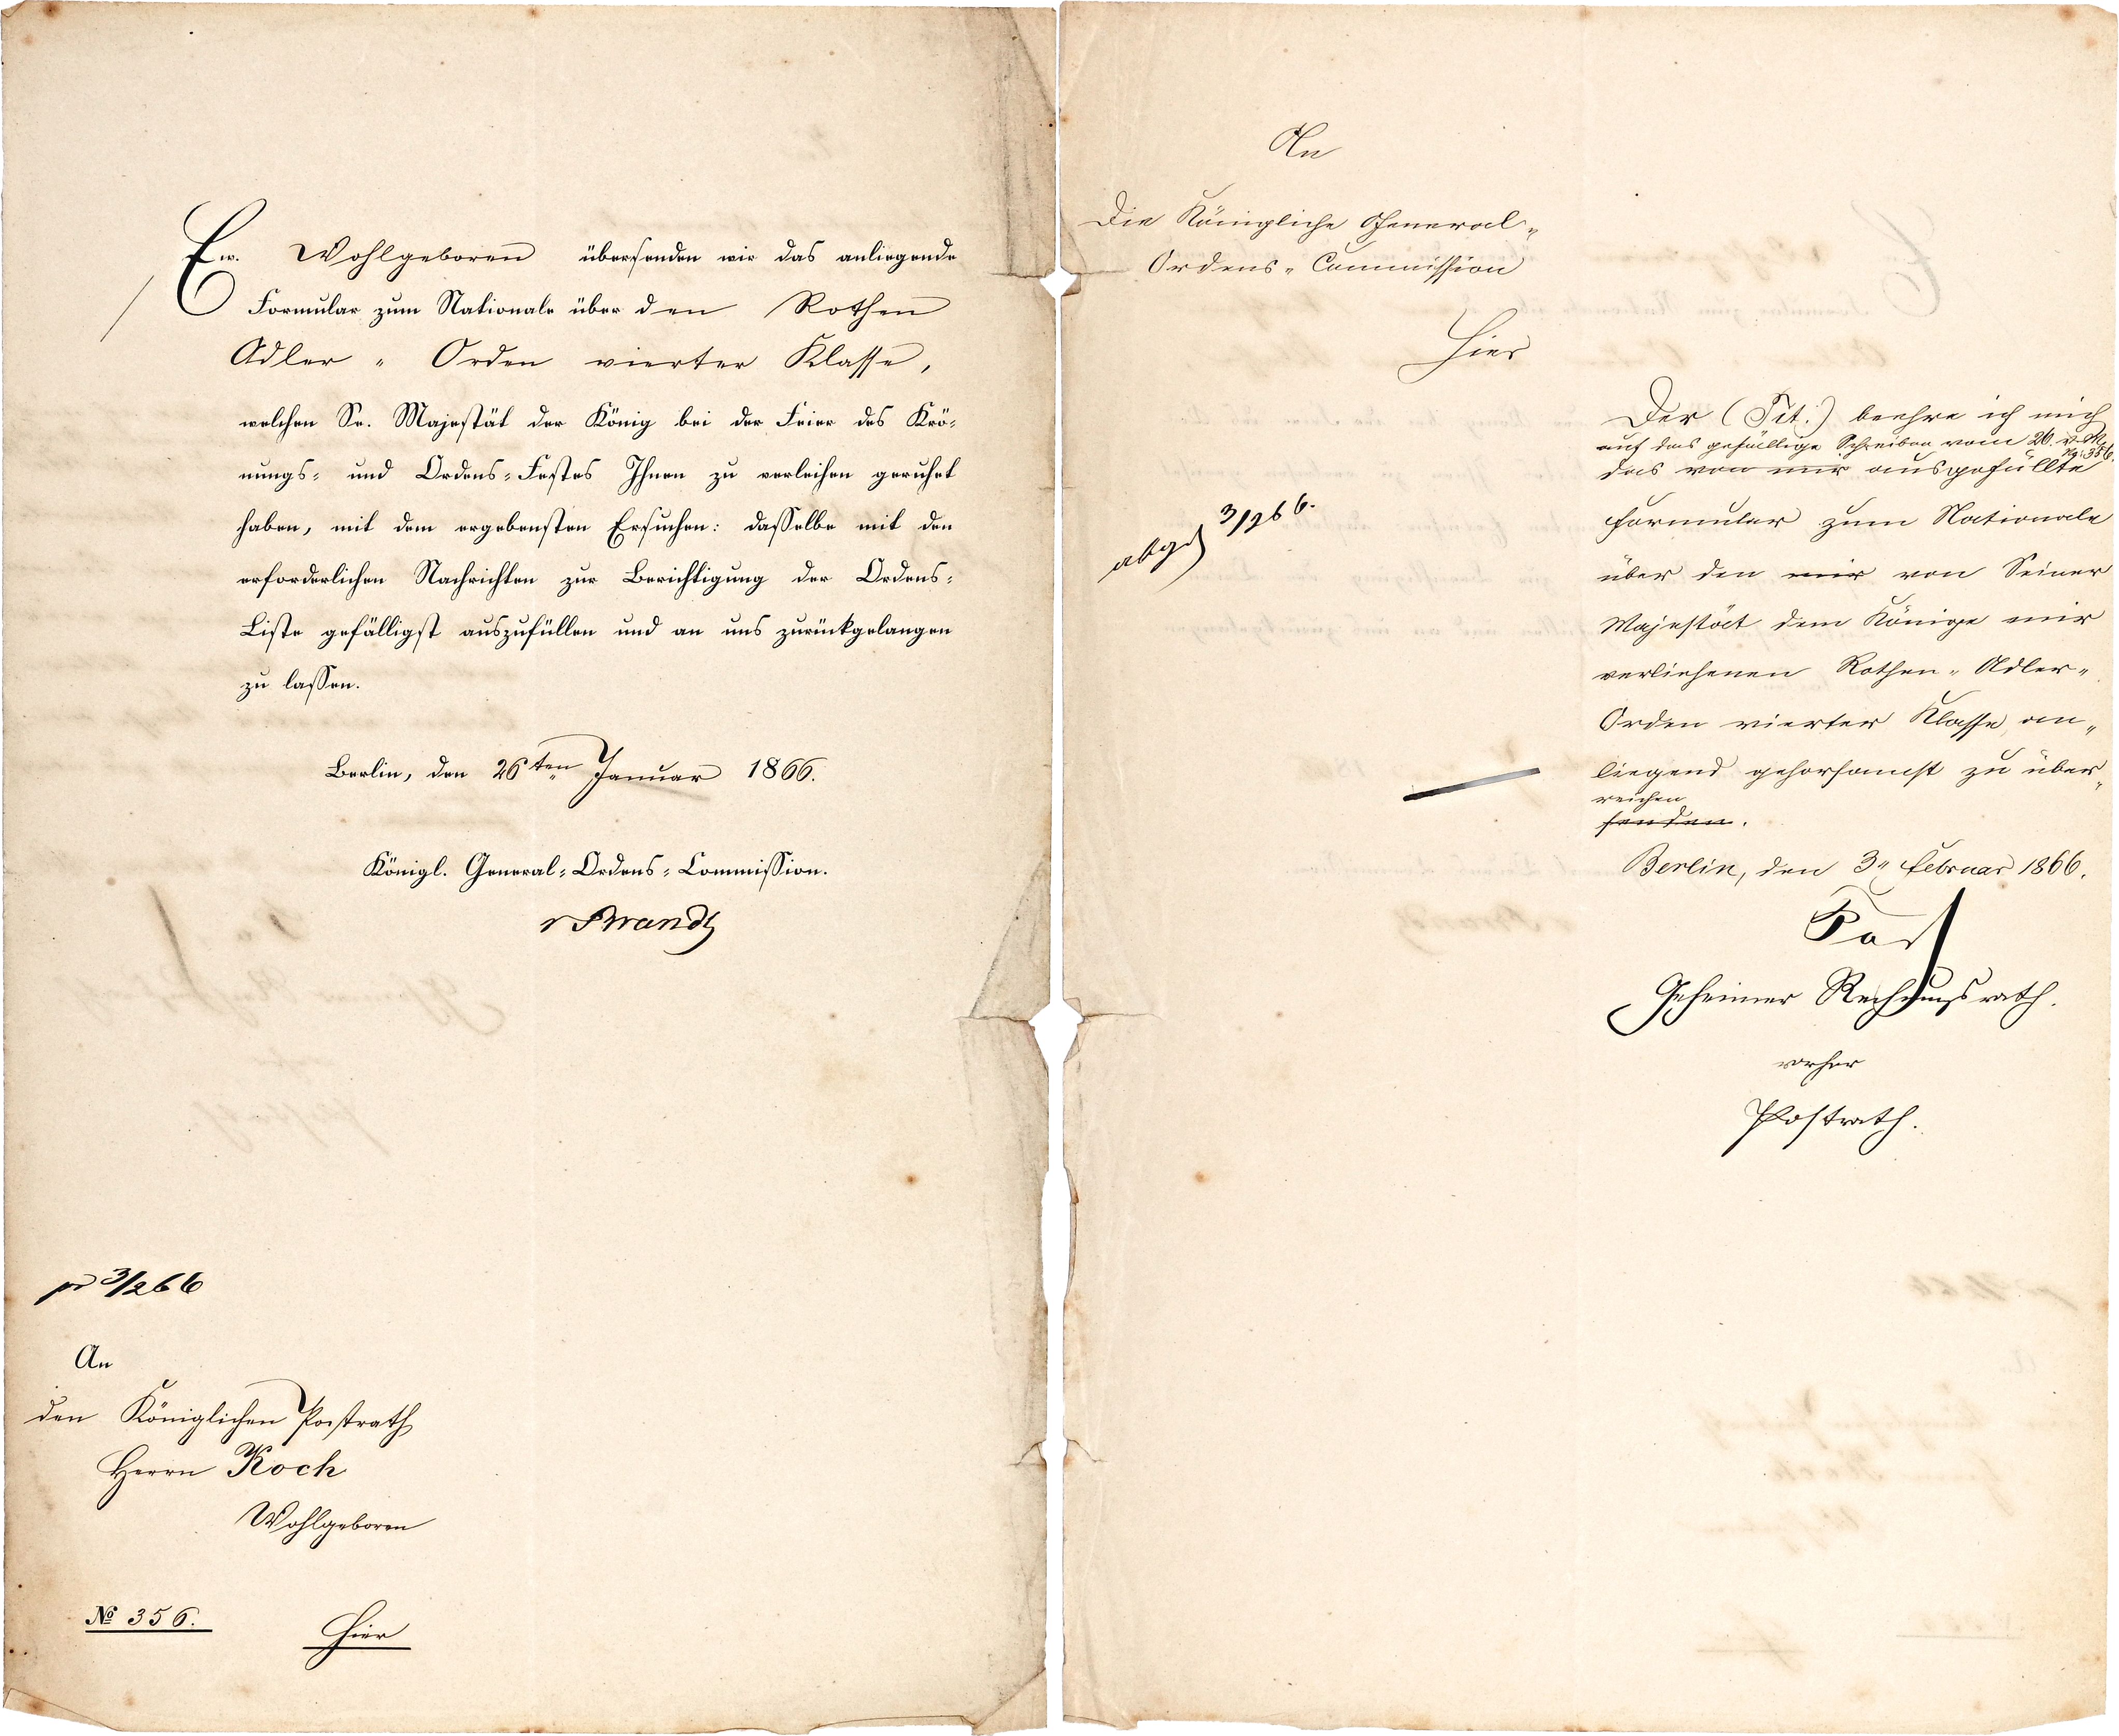 Ew. Wohlgeboren übersenden wir das anliegende
Formular zum Nationale über den Rothen
Adler - Orden vierter Klasse,
welchen Se. Majestät der König bei der Feier des Krö-
nungs- und Ordens-Festes Ihnen zu verleihen geruhet
haben, mit dem ergebensten Ersuchen: dasselbe mit den
erforderlichen Nachrichten zur Berichtigung der Ordens-
Liste gefälligst auszufüllen und an uns zurückgelangen
zu lassen.
Berlin, den 26ten Januar 1866.
Königl. General-Ordens-Commission.
v Brandt
pr 3/2 66
An
den Königlichen Postrath
Herrn Koch
Wohlgeboren
No 356.
Hier
An
Die Königliche General-
Ordens-Commission
Hier
abges 3/2 66.
Der (Tit:) beehre ich mich
auf das gefällige Schreiben vom 26. v. M.
No: 356.
das von mir ausgefüllte
Formular zum Nationale
über den mir von Seiner
Majestät dem Könige mir
verliehenen Rothen-Adler-
Orden vierter Klasse an-
liegend gehorsamst zu über-
reichen
senden.
Berlin, den 3" Februar 1866.
Geheimer Rechnungsrath.
vorher
Postrath.